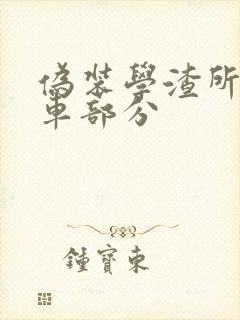 偽裝學渣所
車部分
鍾寶東